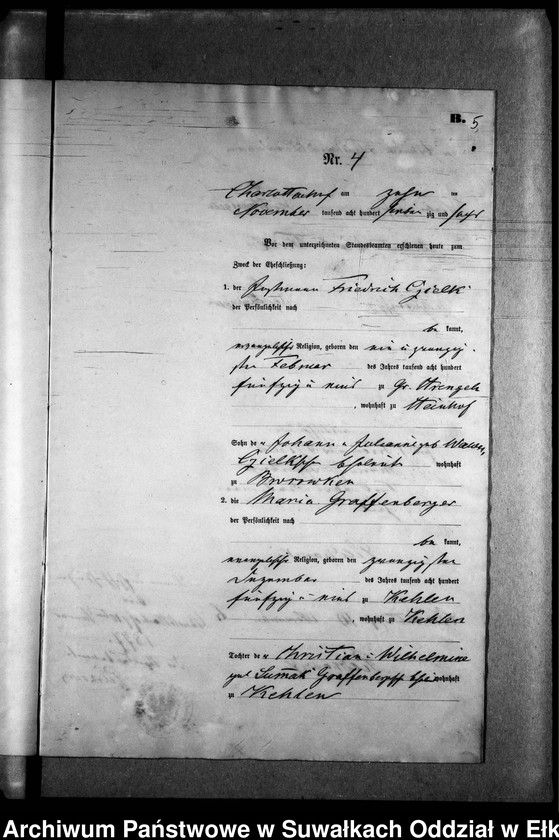 B. 5
Nr. 4
Charlottenhof am zehn ten
November tausend acht hundert siebenzig und sechs
Vor dem unterzeichneten Standesbeamten erschienen heute zum
Zweck der Eheschließung:
1. der Friedrich Czielk
der Persönlichkeit nach
be kannt,
evangelischer Religion, geboren den ein u zwanzig
sten Februar des Jahres tausend acht hundert
fünfzig u eins zu Gr. Strengeln
, wohnhaft zu Steinhof
Sohn de r Johann u
Czielksch wohnhaft
zu Browowken
2. die Maria Graffenberger
der Persönlichkeit nach
be kannt,
evangelischer Religion, geboren den zwanzigsten
Dezember des Jahres tausend acht hundert
fünfzig u eins zu Kehlen
, wohnhaft zu Kehlen
Tochter de r Christian u Wilhelmine
geb wohnhaft
zu Kehlen
Archiwum Państwowe w Suwałkach Oddział w Ełk